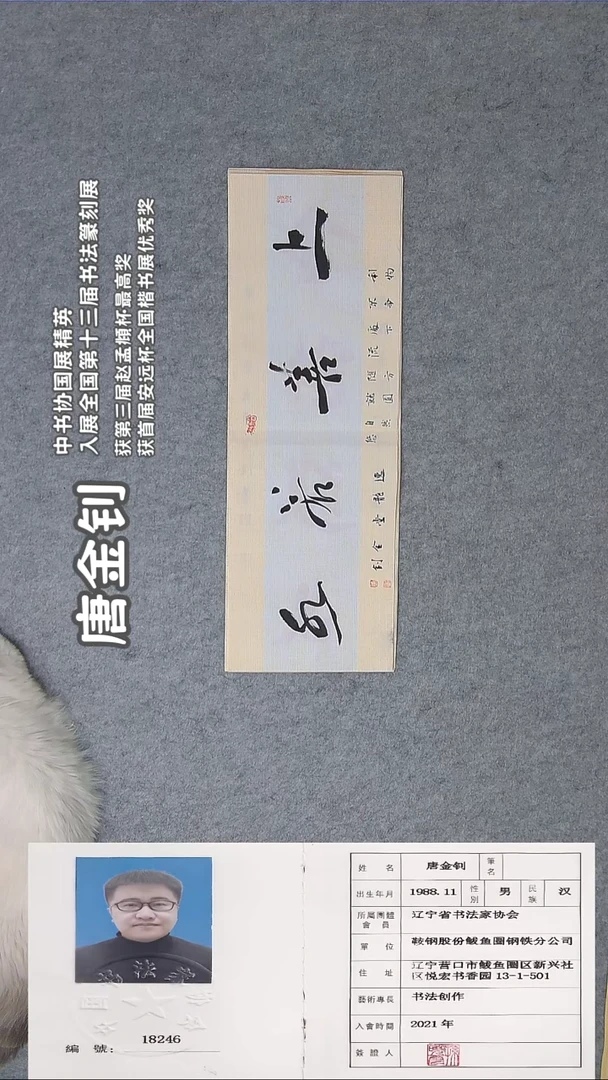 唐金钊
中书协国展精英
入展全国第十三届书法篆刻展
获第三届赵孟頫杯最高奖
获首届安远杯全国楷书展优秀奖
上善若水
編 號: 18246
姓 名 唐金钊 筆名
出生年月 1988.11 性別 男 民族 汉
所屬團體會員 辽宁省书法家协会
單 位 鞍钢股份鲅鱼圈钢铁分公司
住 址 辽宁营口市鲅鱼圈区新兴社
区悦宏书香园 13-1-501
藝術專長 书法创作
入會時間 2021 年
簽證人